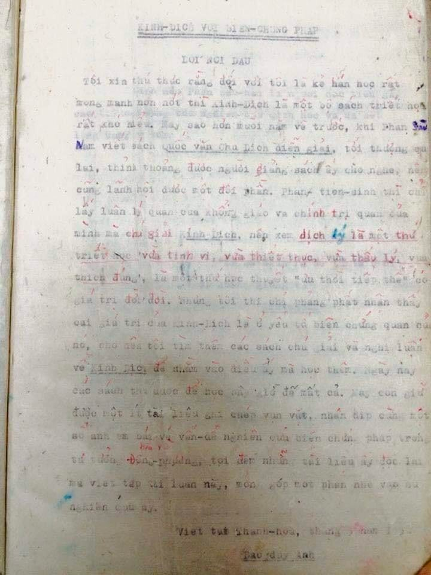 KINH-DỊCH VỚI BIỆN-CHỨNG PHÁP
LỜI NÓI ĐẦU
Tôi xin thú thực rằng đối với tôi là kẻ hán học rất
mong manh hời hợt thì Kinh-Dịch là một bộ sách triết học
rất khó hiểu. May sao hơn mười năm về trước, khi Phan Sào
Nam viết sách Quốc văn Chu Dịch diễn giải, tôi thường qua
lại, thỉnh thoảng được người giảng sách ấy cho nghe, nên
cũng lãnh hội được một đôi phần. Phan tiên-sinh thì chỉ
lấy luân lý quan của Khổng giáo và chính trị quan của
mình mà chú giải Kinh Dịch, nên xem dịch lý là một thứ
triết học "vừa tinh vi, vừa thiết thực, vừa thấp lý, vừa
thích đáng", là một thứ học thuyết "ưu thời tiếp thế" có
giá trị đời đời. Nhưng tôi thì chỉ phảng phất nhận thấy
cái giá trị của Kinh-Dịch là ở yếu tố biện chứng quan của
nó, cho nên tôi tìm thấy các sách chú giải và nghị luận
về Kinh Dịch để nhằm vào điều ấy mà học thêm. Ngày nay
các sách thu được để học bấy giờ để mất cả. Nay còn giữ
được một ít tài liệu ghi chép vụn vặt, nhân hiệp cùng một
số anh em bàn về vấn-đề nghiên cứu biện chứng pháp trong
tư tưởng Đông-phương, tôi đem những tài liệu ấy đọc lại
mà viết tập tài luận này, mong góp một phần nhỏ vào sự
nghiên cứu ấy.
Viết tại Thanh-hóa, tháng năm
Đào duy Anh